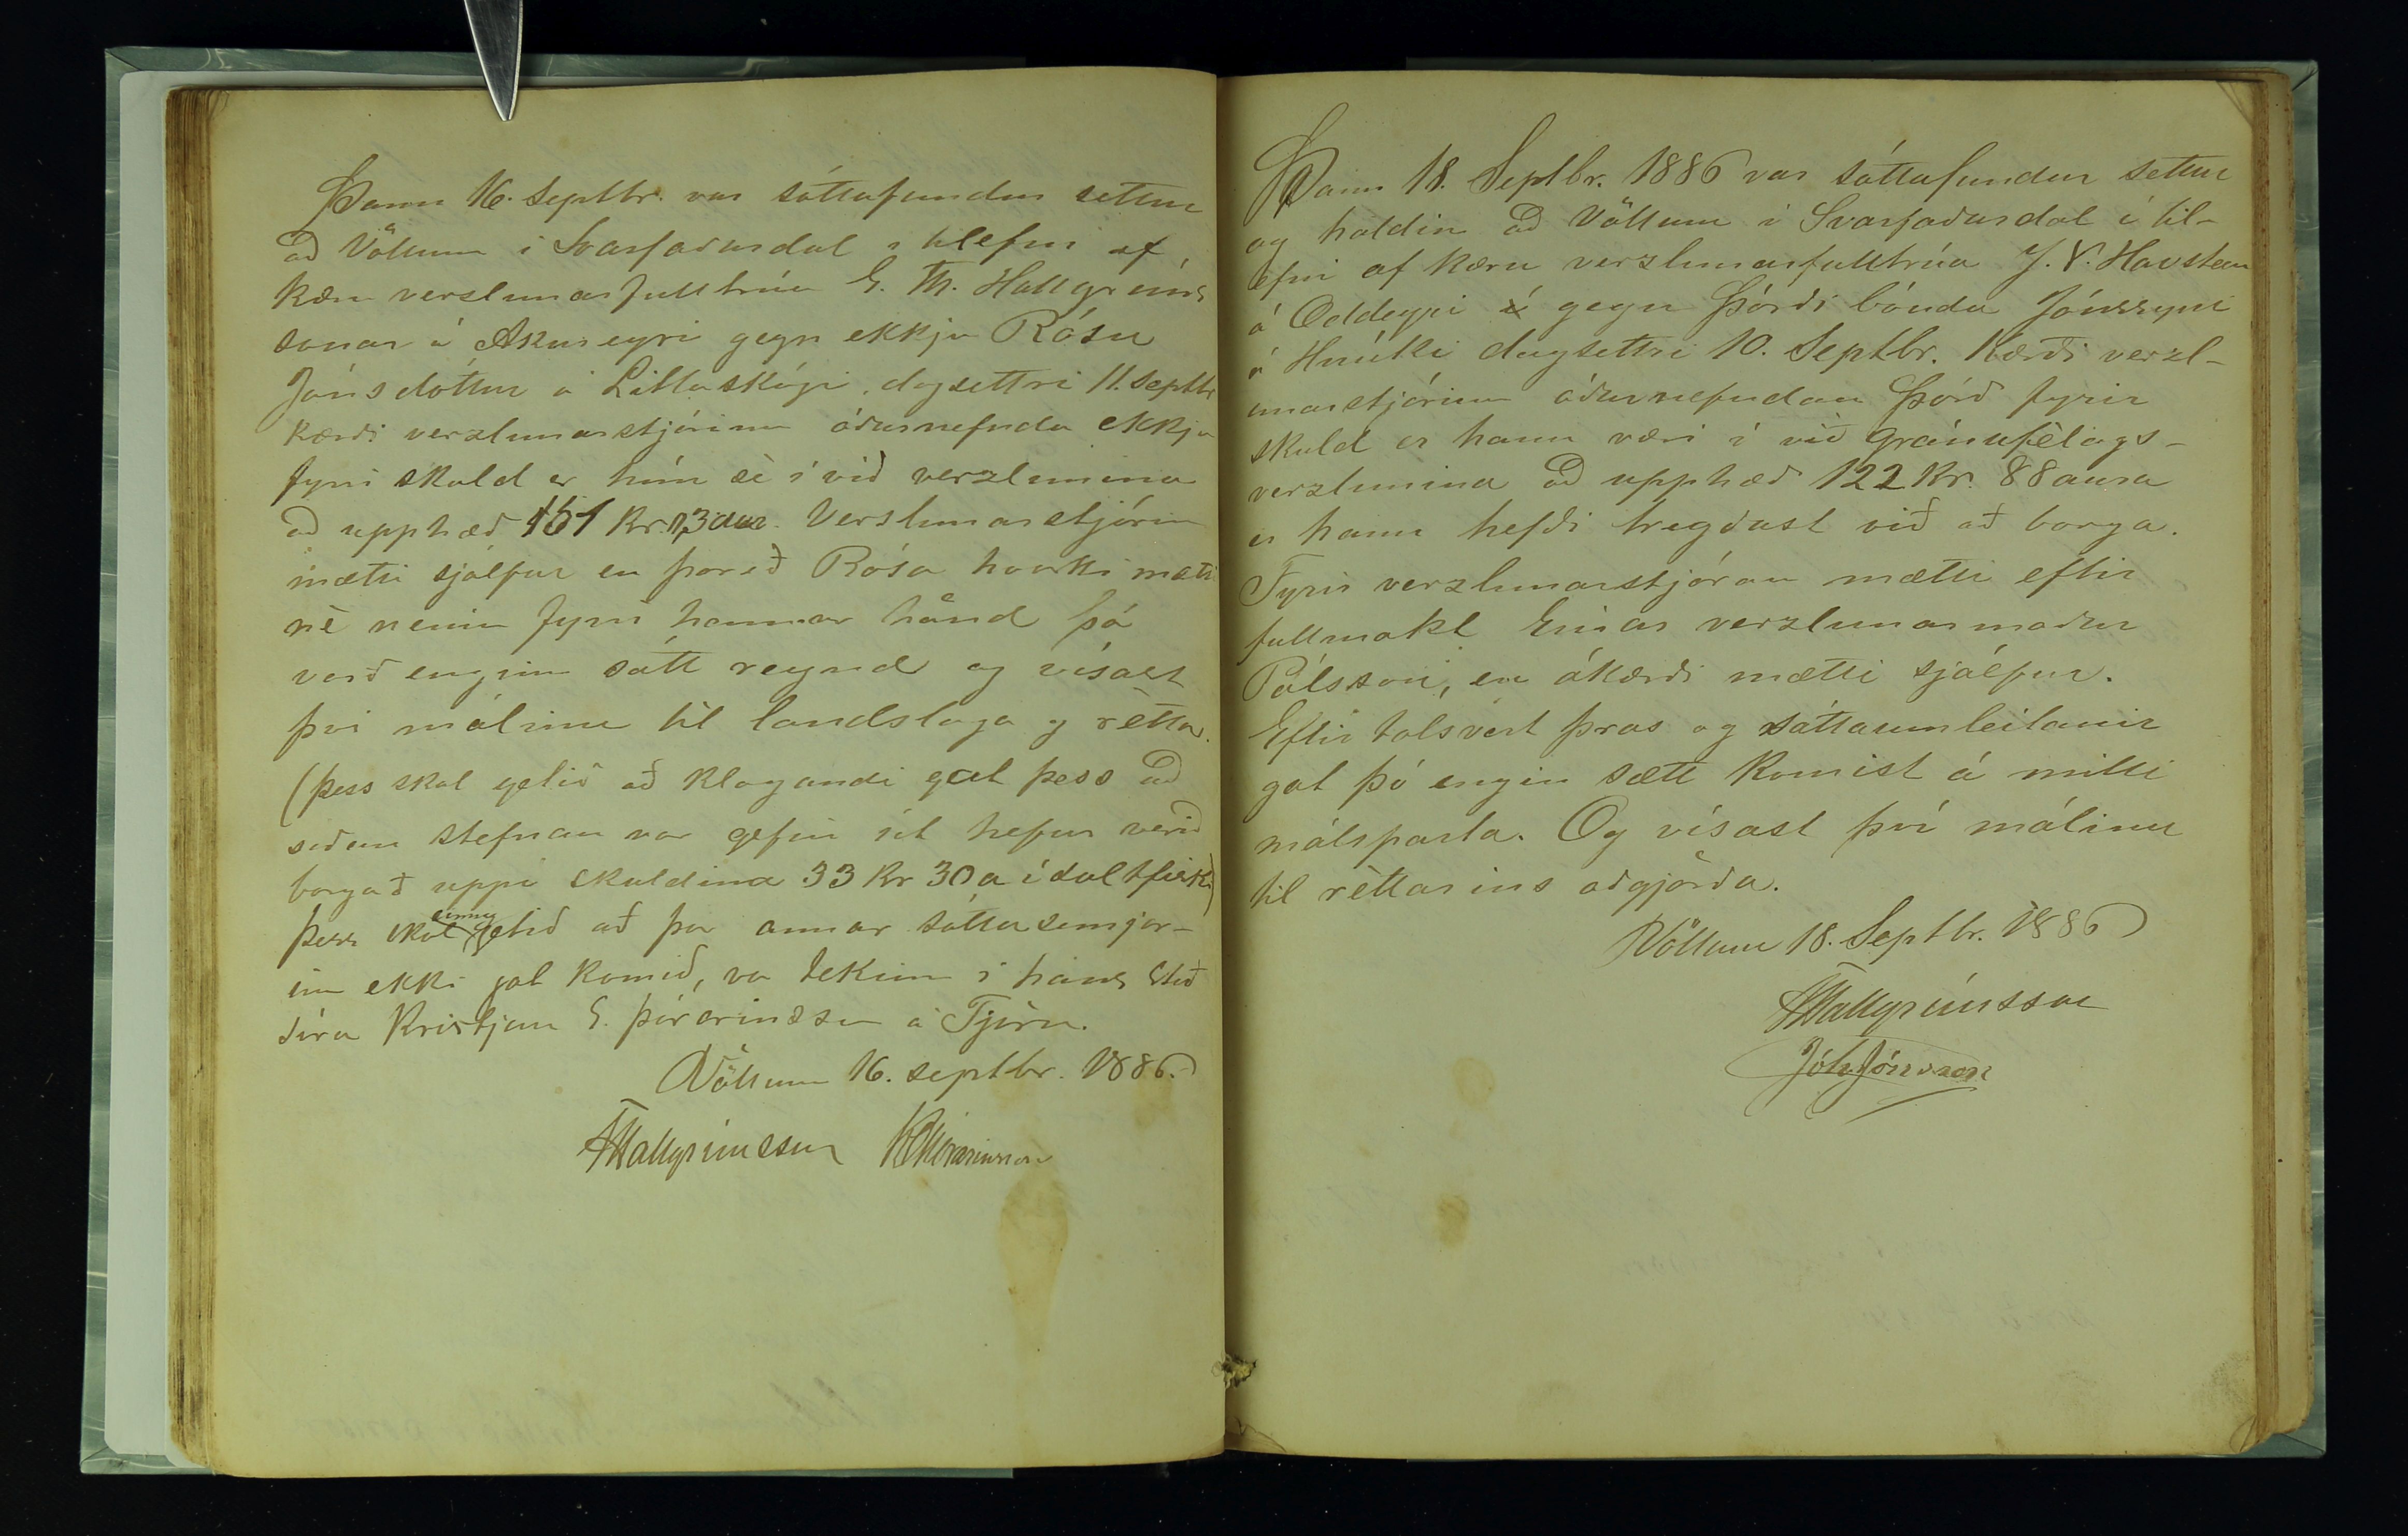 Þann 16. Septbr. var sáttafundur settur
að Völlum í Svarfaðardal í tilefni af
kæru verslunarfulltrúa E. Th. Hallgríms
sonar á Akureyri gegn ekkju Rósu
Jónsdóttur á Litlaskógi, dagsettri 11. Septbr
kærði verzlunarstjórinn áðurnefnda ekkju
fyrir skuld er hún sè í við verzlunina
að upphæð 151 Kr. 73 aur. Verslunarstjórin
mætti sjálfur en þareð Rósa hvorki mætti
nè neinn fyrir hennar hånd þá
varð enginn sátt reynd og vísast
því málinu til landslaga og rètta.
(þess skal getið að klagandi gat þess að
siðan stefnan var gefin út hefur verið
borgað uppi skuldina 33 Kr 30 a í saltfiski)
Þess skal einnig getið að þar annar sáttasemjar-
inn ekki gat komið, var tekinn í hans stað
síra Kristján E. Þórarinsson á Tjörn.
Völlum 16. septbr. 1886.
THallgrímsson KEÞórarinsson
Þann 18. Septbr. 1886 var sáttafundur settur
og haldin að Völlum í Svarfaðardal í til-
efni af kæru verzlunarfulltrúa J. V. Havsteen
á Oddeyri á gegn Þórði bónda Jónssyni
á Hnúki dagsettri 10. Septbr. Kærði verzl-
unarstjórinn áðurnefndan Þórð fyrir
skuld er hann væri í við Gránufèlags-
verzlunina að upphæð 122 Kr. 88 aura
er hann hefði tregðast við að borga.
Fyrir verzlunarstjóran mætti eftir
fullmakt Einar verzlunarmaður
Pálsson, en ákærði mætti sjálfur.
Eftir talsvert þras og sáttaumleitanir
gat þó engin sætt komist á milli
málsparta. Og vísast því málinu
til rèttarins aðgjörða.
Völlum 18. Septbr. 1886
THallgrímsson
Jóh. Jónsson